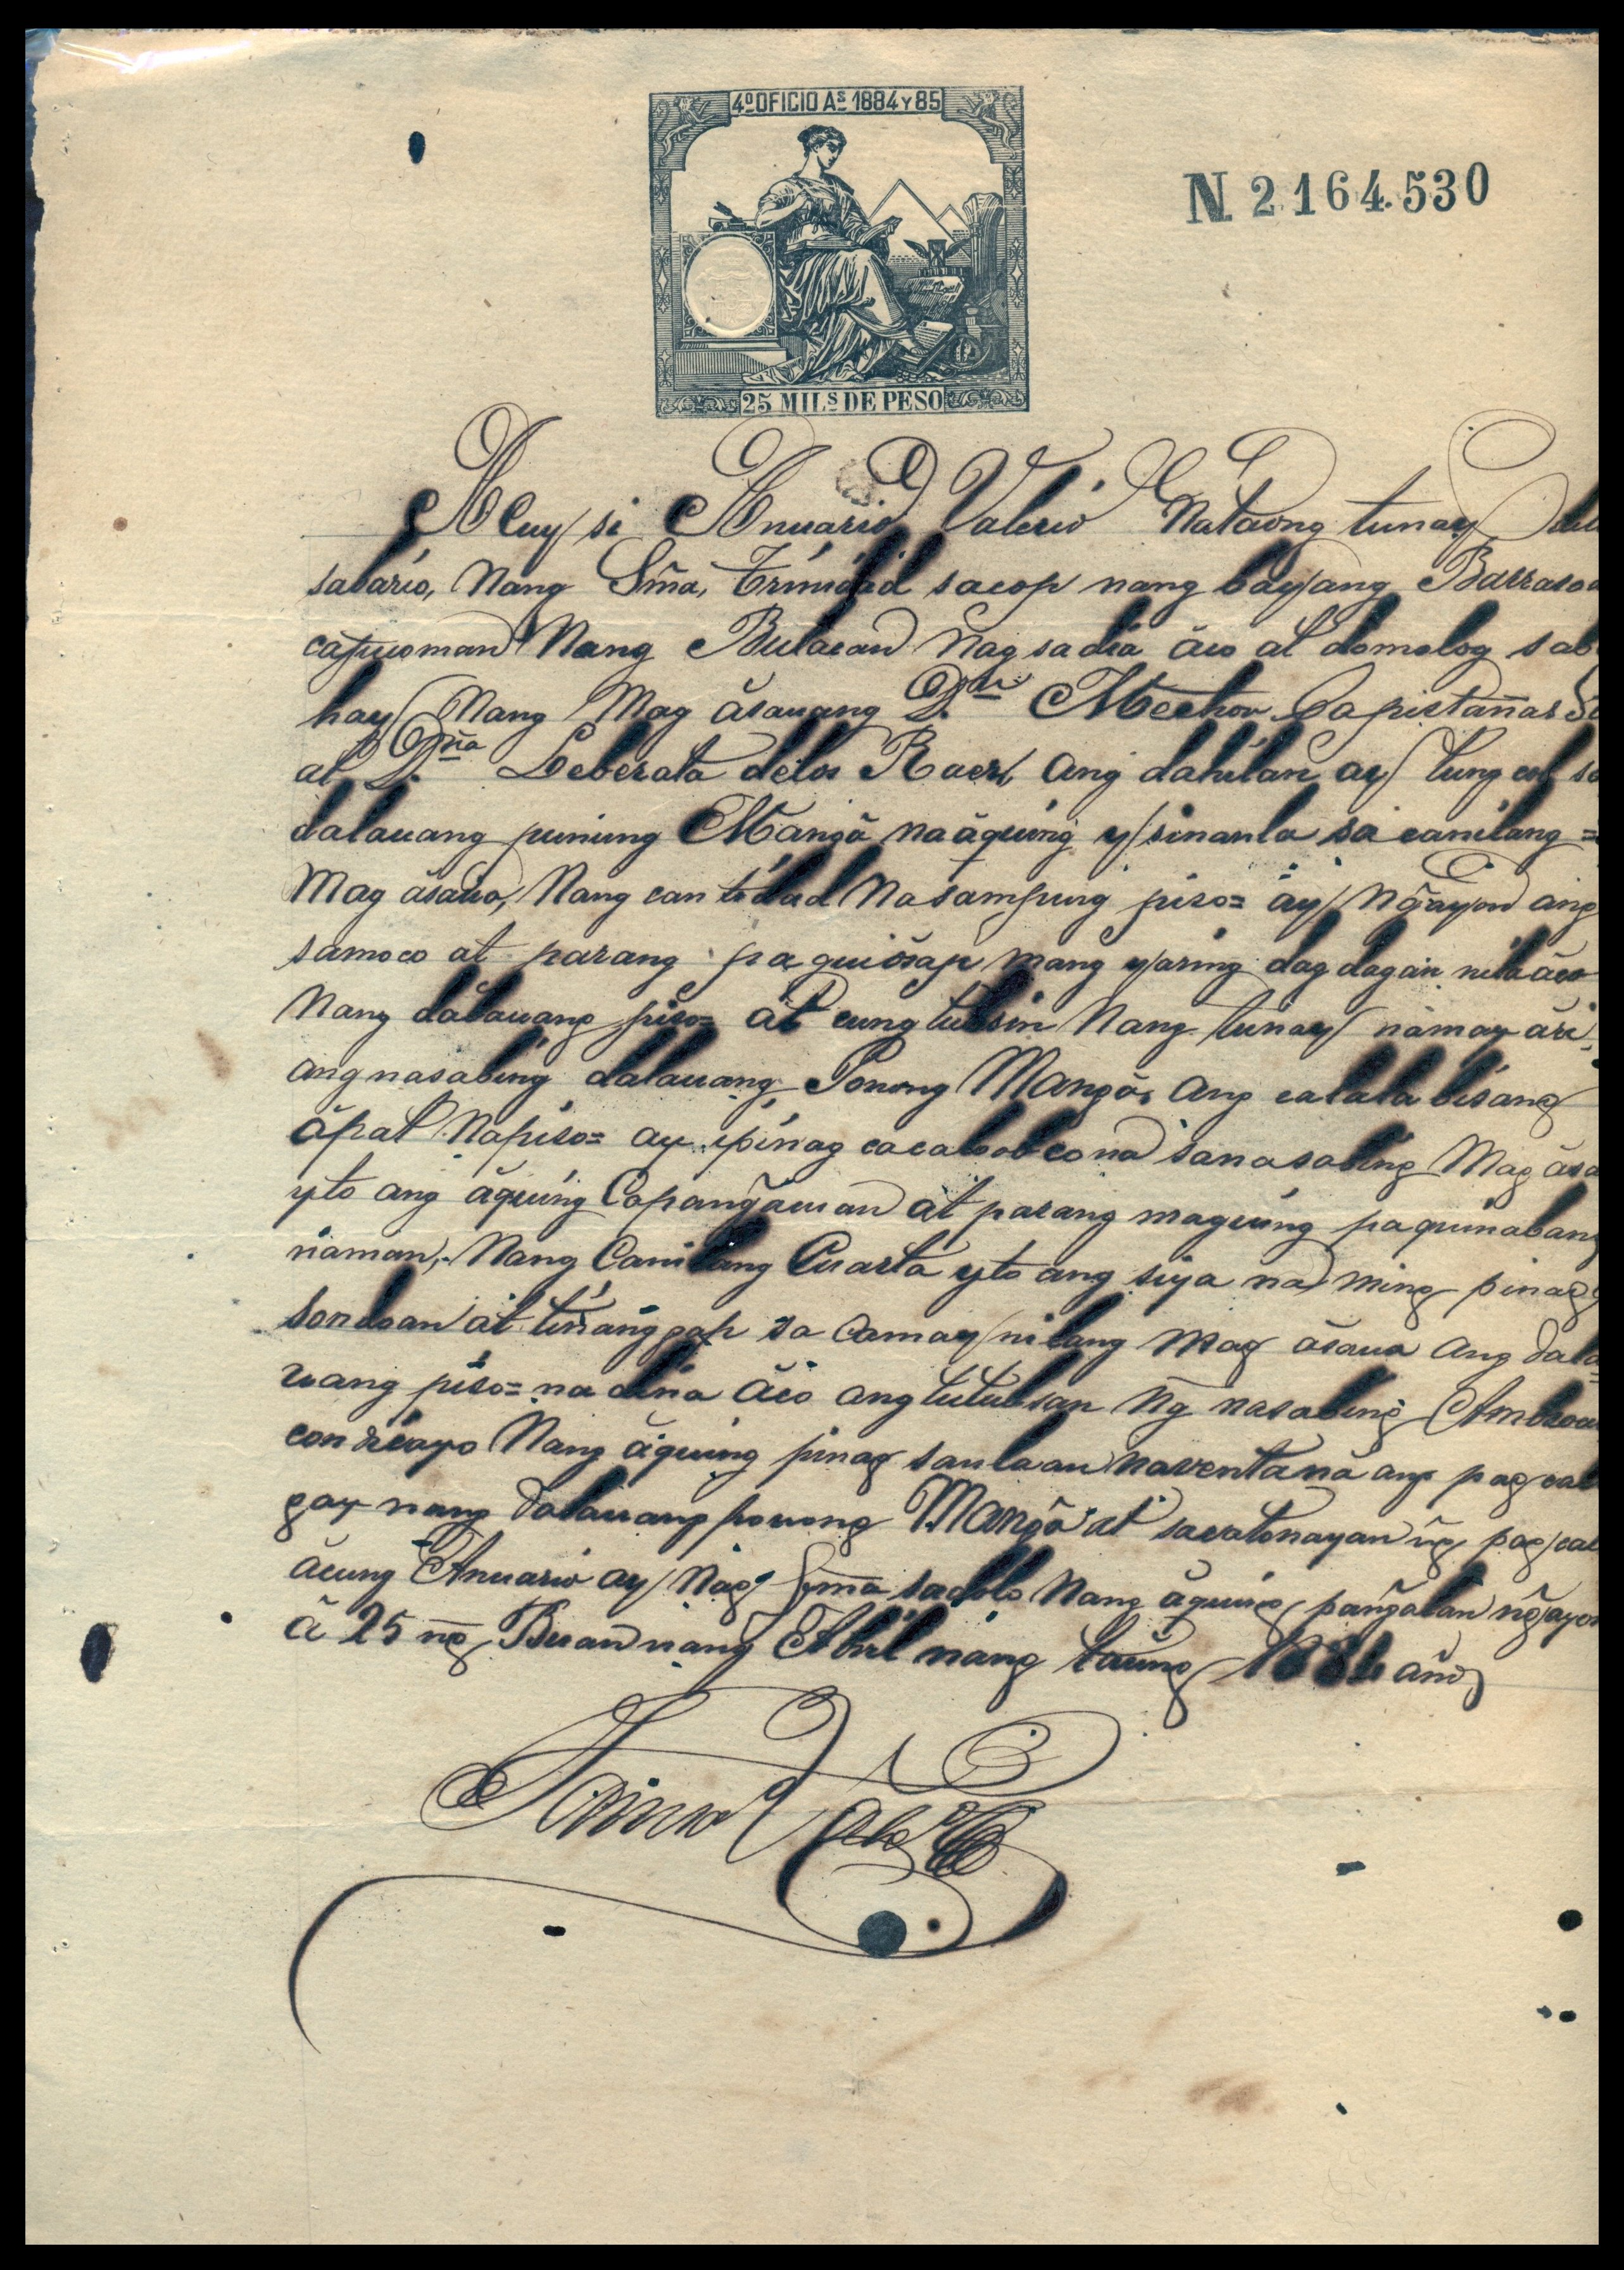 4º OFICIO Aˢ 1884 Y 85
N. 2.164.530
25 MILˢ DE PESO
Acuy si Anuario Valerio Nataong tunay
sabario, Nang Sm̃a, Trinidad sacop nang bayang Barrasoa
capuoman Nang Bulacan Nag sadia āco at domolog sab
hay Nang Mag āsauang D.ⁿ Mechor Capistañas
at D.ña Leberata delos Raers, Ang dahilan ay tungcol sa
dalauang puniung Mangā na āquing ysinanla sa canilang =
Mag āsaua, Nang cantidad Na sampung piso= āy Ng̃ayon ang
samoco at parang paquiosap nang yaring dag dagan nila āco
Nang dalauang piso= at cung tubsin Nang tunay namay āri,
ang nasabing dalauang Ponong Mangā, Ang calalabisang
āpat Napiso= ay ipinag cacaloob cona sanasabing Mag āsa
yto ang āquing Capang̃acuan at parang maguing paquinabang
naman, Nang Canilang Cuarta yto ang siya na ming pinag
sondoan at tinanggap sa Camay nilang Mag āsaua Ang dala=
uang piso= na dina āco ang tutubsan Ng̃ nasabing
Nang āquing pinag sanlaan naventa nā ang pag cal
gay nang Dalauang ponong Mangā at sacatonayan ng̃ pag cal
ācung Anuario ay Nag firma sadolo Nang āquing pang̃alan ng̃ayon
ā 25 ng̃ Buan nang Abril nang taung 1884 año